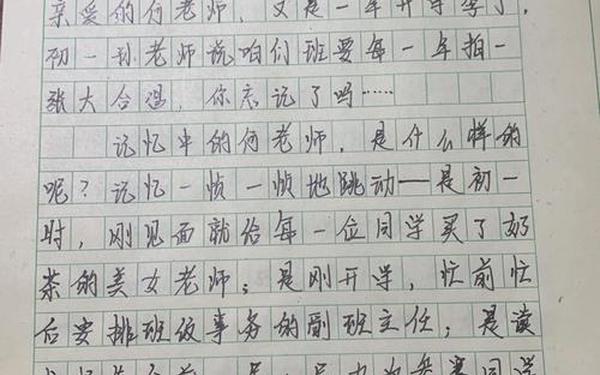 亲爱的何老师，又是一年开学季了，
初一孙老师说咱们班要每一年拍一
张大合温，你忘记了吗……
记忆中的何老师，是什么样的
呢？记忆一帧一帧地跳动——是初一
时，刚见面就给每一位同学买了奶
茶的美女老师；是刚开学，忙前忙
后安排班级事务的副班主任；是读
同学